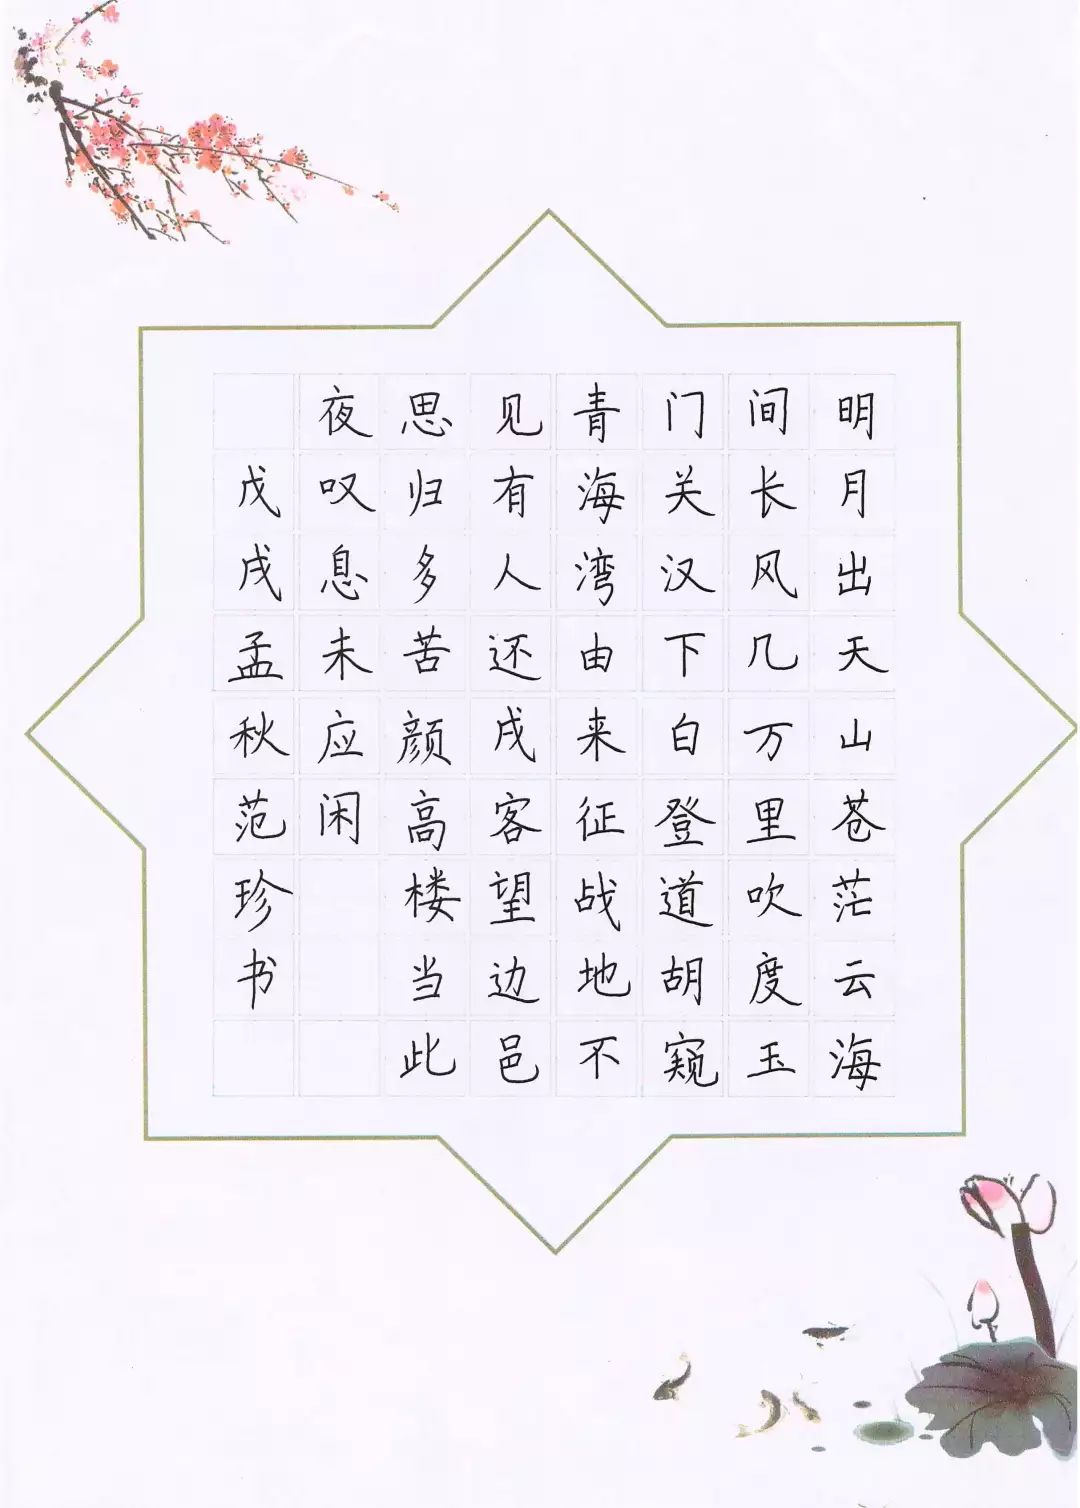 明月出天山苍茫云海
间长风几万里吹度玉
门关汉下白登道胡窥
青海湾由来征战地不
见有人还戍客望边邑
思归多苦颜高楼当此
夜叹息未应闲
戊戌孟秋范珍书